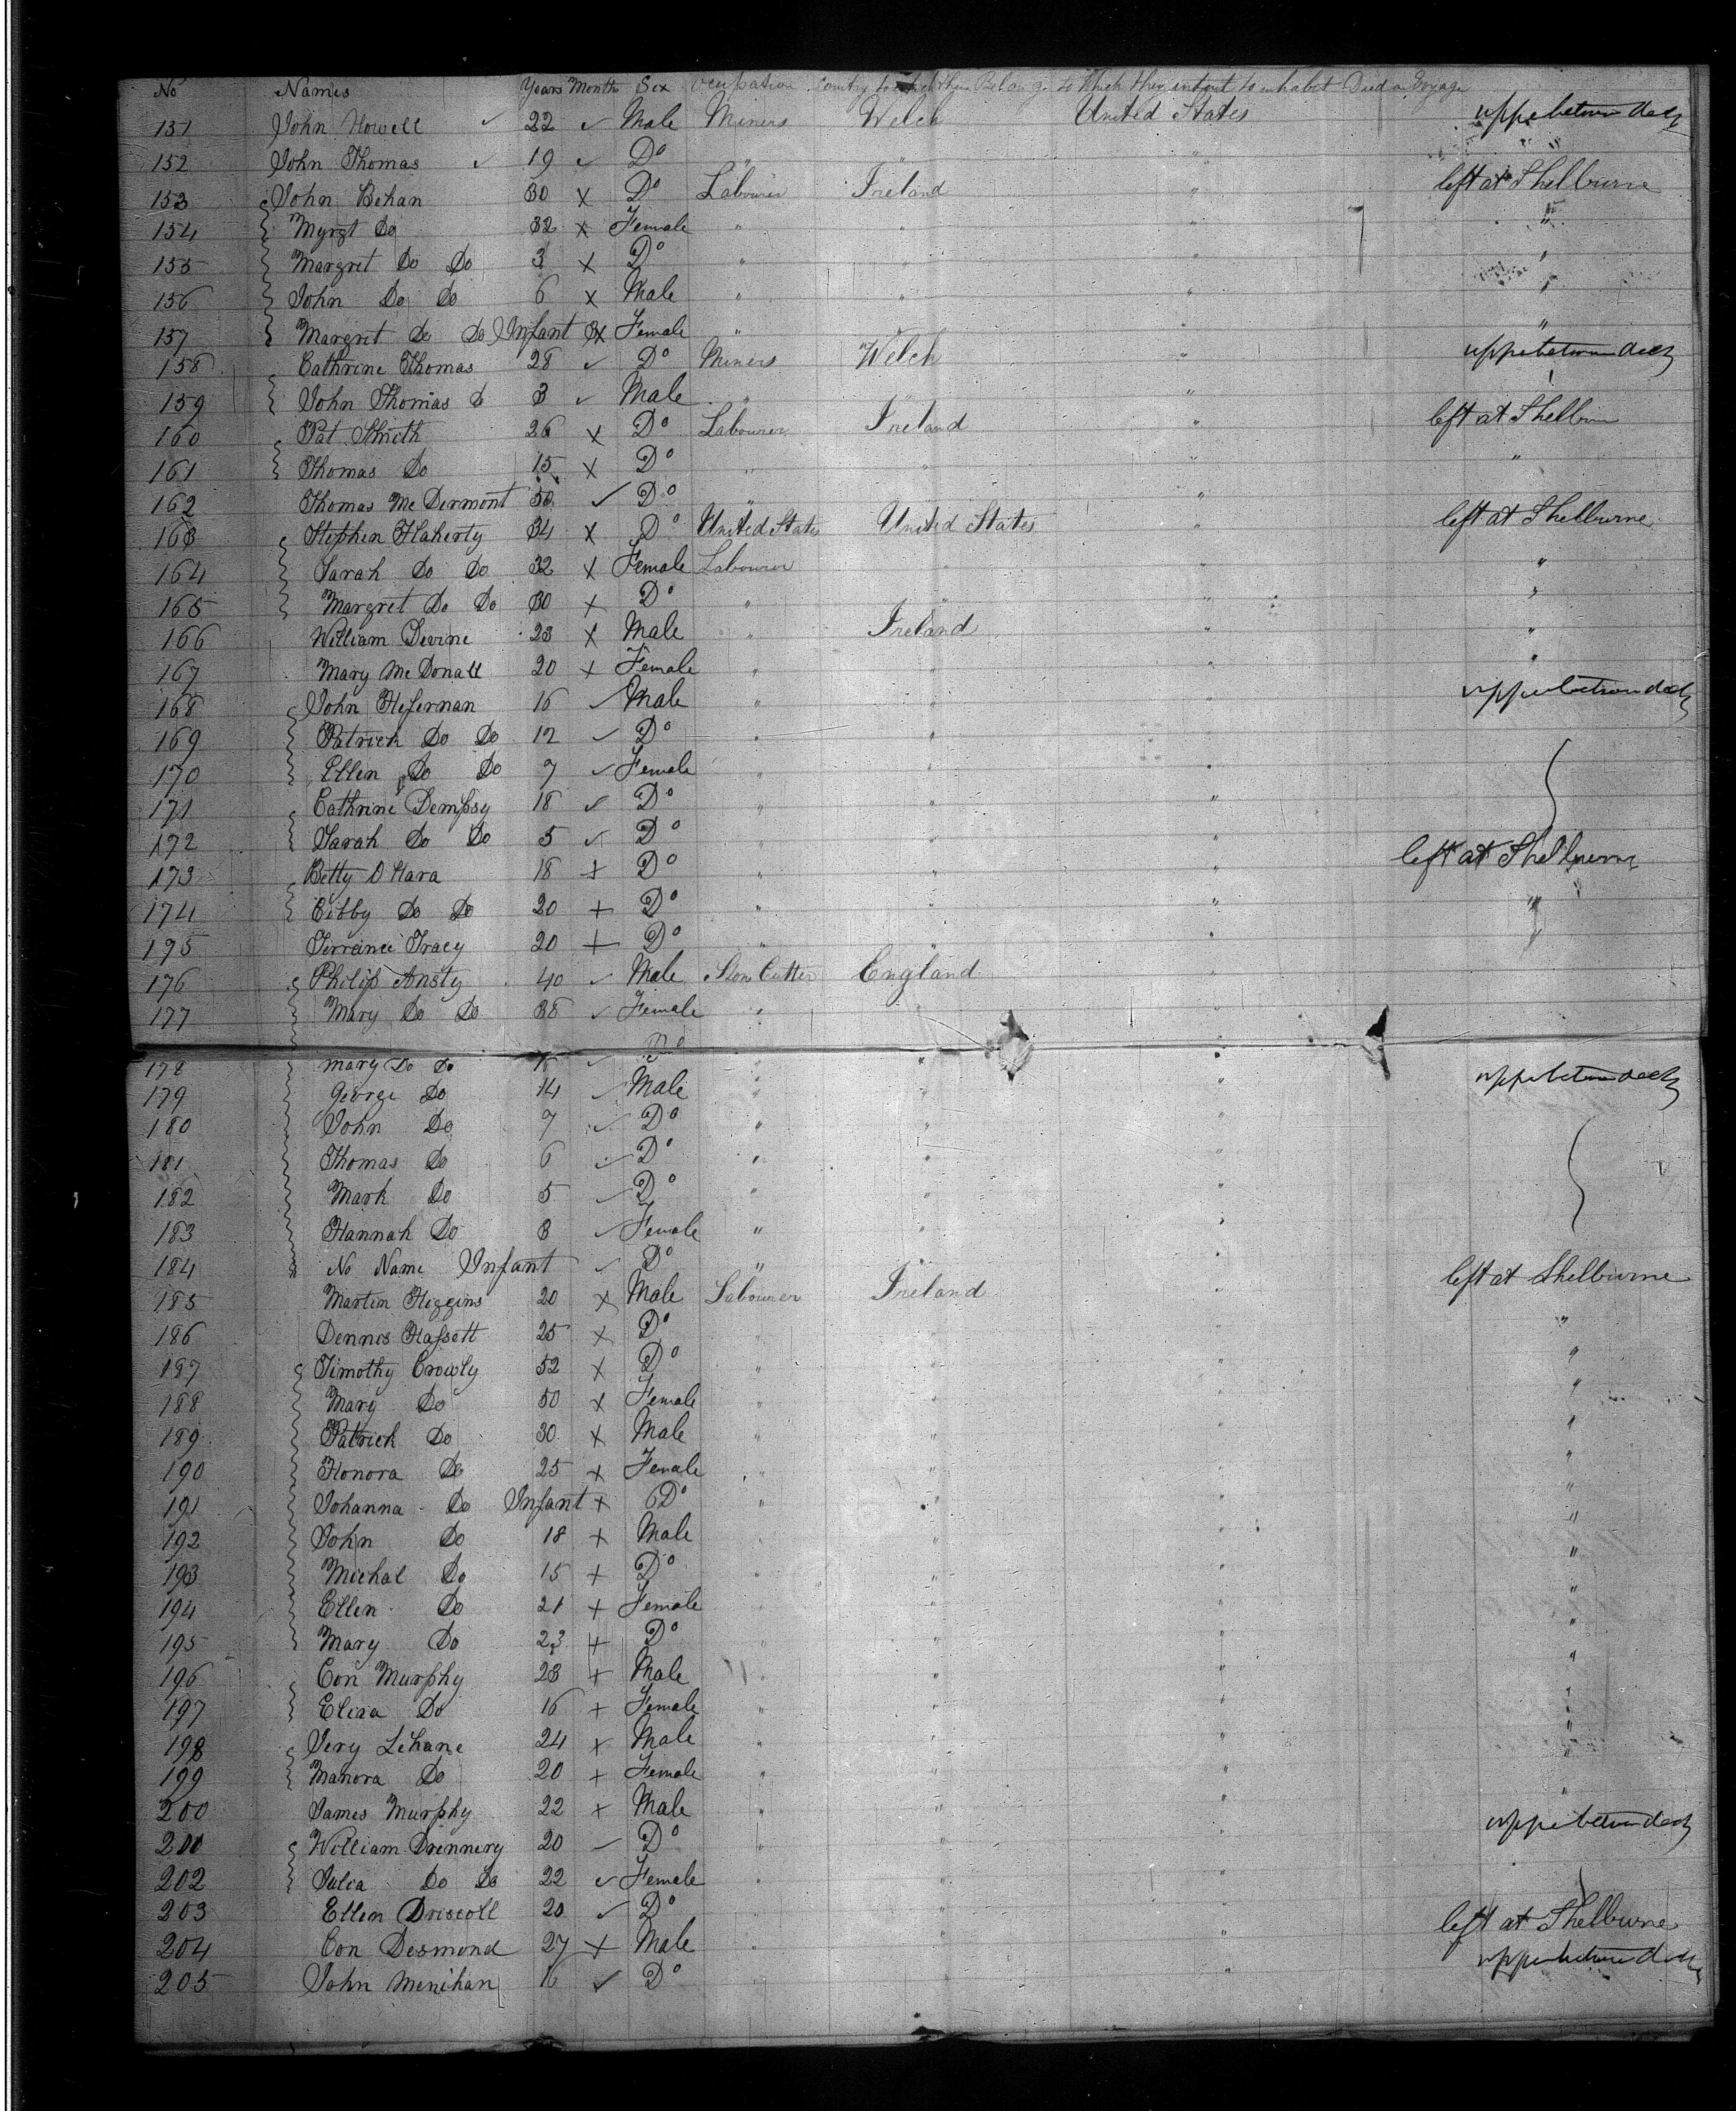 No Names Years Month Sex Ocupation Country to which they Belong to Which they intent to inhabit Died on Voyage
151 John Howell ✓ 22 ✓ Male Miners Welch United States uppe betwen deck
152 John Thomas ✓ 19 ✓ Do " " "
153 John Behan 30 x Do Labourer Ireland " left at Shelburne
154 Mgrgt Do 32 x Female " " " "
155 Margret Do Do 3 x Do " " " "
156 John Do Do 6 x Male " " " "
157 Margrit Do Do Infant x Female " " " "
158 Cathrine Thomas 28 ✓ Do Miners Welch " uppe betwen deck
159 John Thomas Do 3 ✓ Male " " "
160 Pat Smith 26 x Do Labourer Ireland " left at Shelburn
161 Thomas Do 15 x Do " " " "
162 Thomas Mc Dermont 50 ✓ Do " "
163 Stephen Flaherty 34 x Do United States United States " left at Shelburne
164 Sarah Do Do 32 x Female Labourer " " "
165 Margret Do Do 30 x Do " " " "
166 William Devine 23 x Male " Ireland " "
167 Mary Mc Donall 20 x Female " " " "
168 John Hefernan 16 ✓ Male " " " uppe betwen deck
169 Patrick Do Do 12 ✓ Do " " "
170 Ellen Do Do 7 ✓ Female " " "
171 Cathrine Dempsy 18 ✓ Do " " "
172 Sarah Do Do 5 ✓ Do " " "
173 Betty O Hara 18 + Do " " " left at Shelburne
174 Cibby Do Do 20 + Do " " " "
175 Terrance Tracy 20 + Do " " " "
176 Philip Ansty 40 ✓ Male Stone Cutter England "
177 Mary Do Do 38 ✓ Female " "
178 Mary Do Do 15 ✓ Do " " "
179 George Do 14 ✓ Male " " " uppe betwen deck
180 John Do 7 ✓ Do " " "
181 Thomas Do 6 ✓ Do " " "
182 Mark Do 5 ✓ Do " " "
183 Hannah Do 3 ✓ Female " " "
184 No Name Infant ✓ Do " " "
185 Martin Higgins 20 x Male Labourer Ireland " left at Shelburne
186 Dennis Hassett 25 x Do " " " "
187 Timothy Crowly 52 x Do " " " "
188 Mary Do 50 x Female " " " "
189 Patrick Do 30 x Male " " " "
190 Honora Do 25 x Female " " " "
191 Johanna Do Infant + Do " " " "
192 John Do 18 + Male " " " "
193 Michal Do 15 + Do " " " "
194 Ellen Do 21 + Female " " " "
195 Mary Do 23 + Do " " " "
196 Con Murphy 23 + Male " " " "
197 Eliza Do 16 + Female " " " "
198 Jery Lehane 24 + Male " " " "
199 Manora Do 20 + Female " " " "
200 James Murphy 22 + Male " " " "
201 William Drennery 20 ✓ Do " " " uppe betwen deck
202 Julia Do Do 22 ✓ Female " " "
203 Ellen Driscoll 20 ✓ Do " " "
204 Con Desmond 27 + Male " " " left at Shelburne
205 John Menihan 16 ✓ Do " " " uppe betwen deck